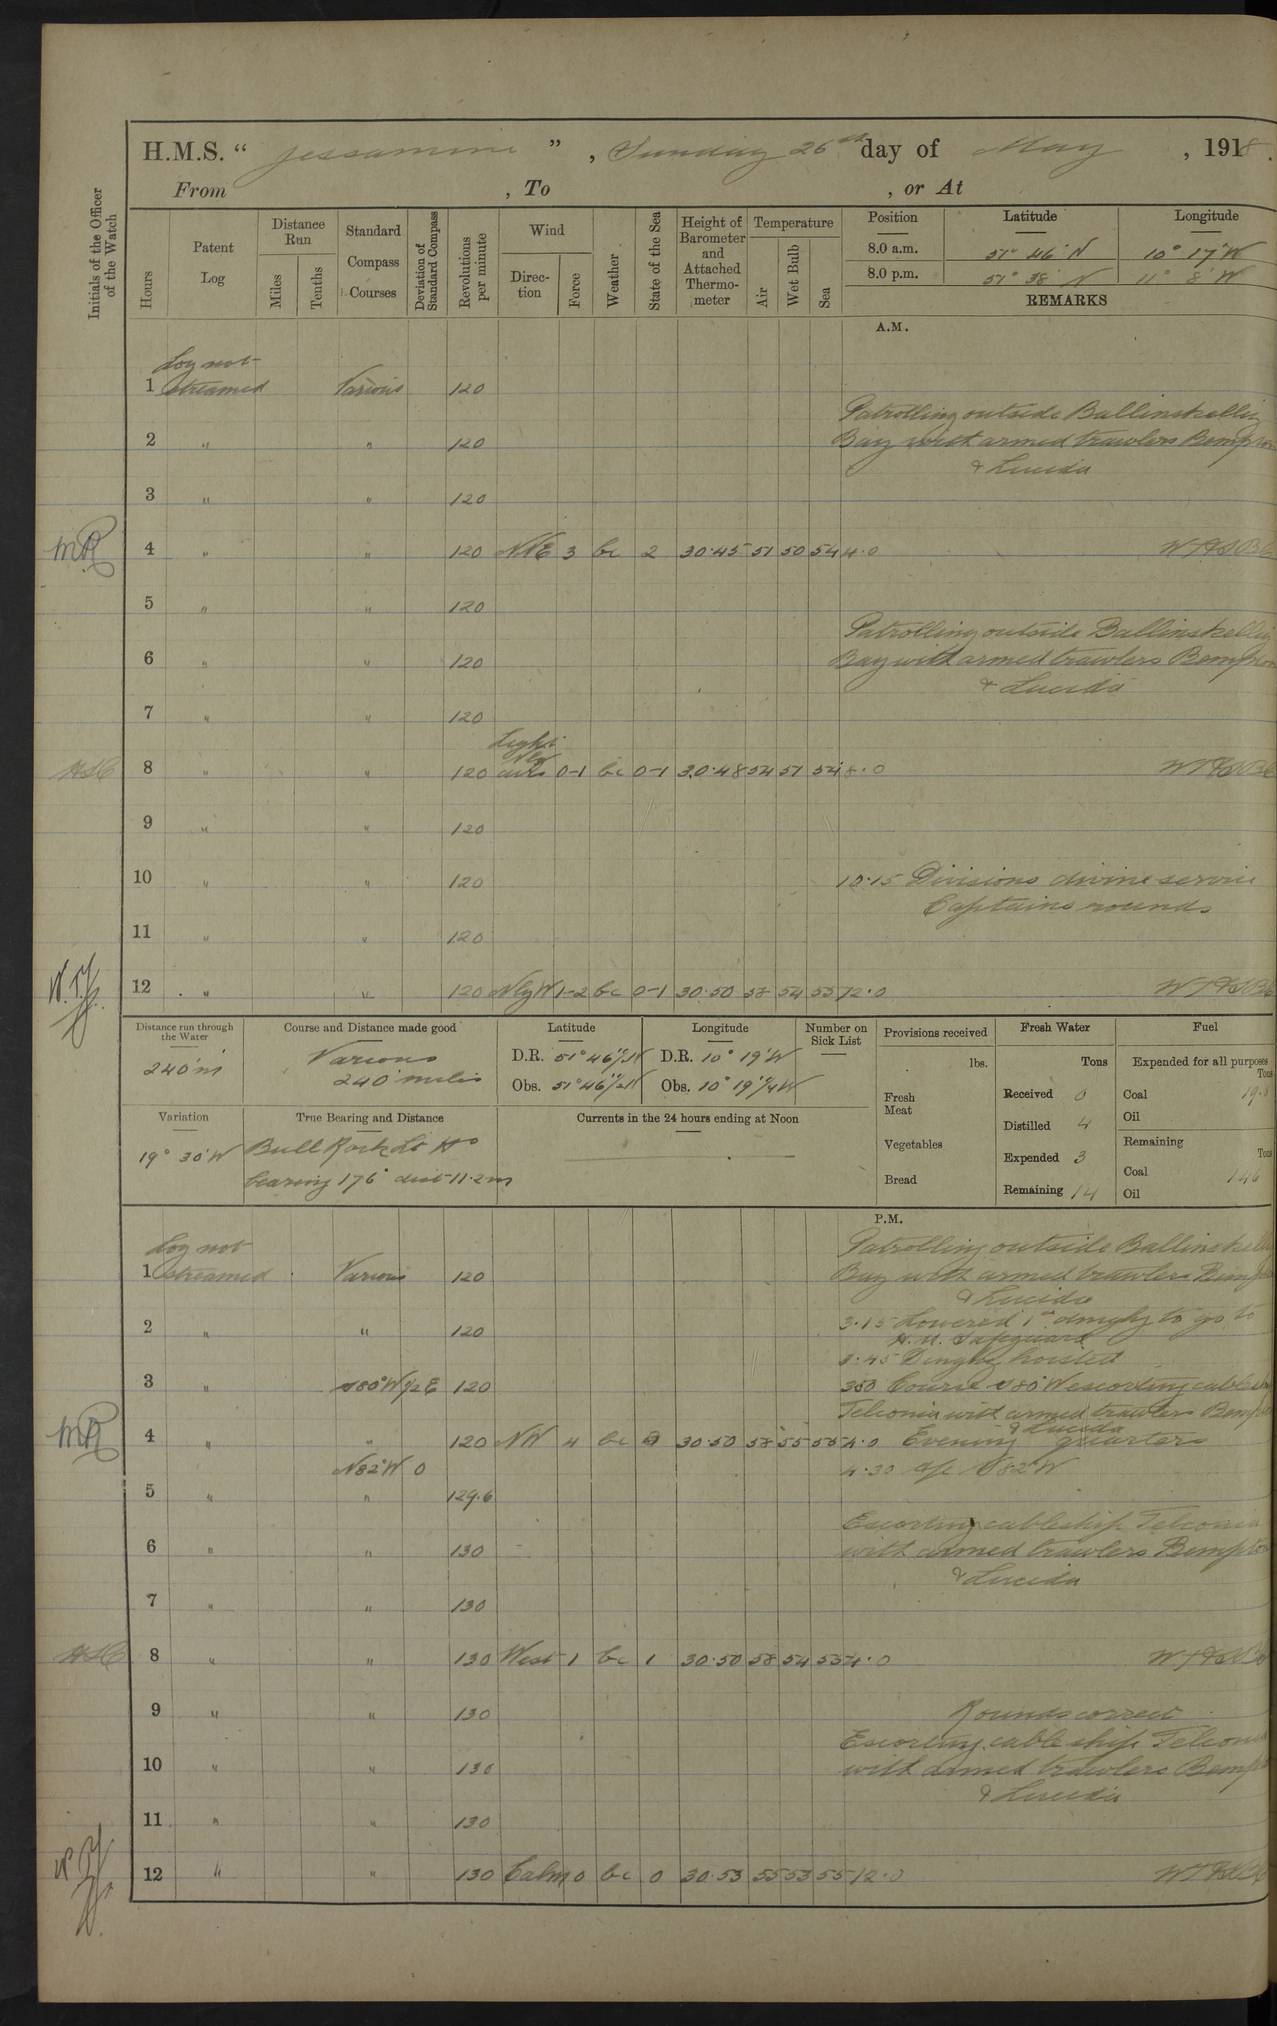 H.M.S. " Jessamine " , Sunday 26th day of May , 1918.
From , To , or At
Initials of the Officer of the Watch
Hours
Patent Log
Distance Run
Miles
Tenths
Standard Compass Courses
Deviation of Standard Compass
Revolutions per minute
Wind
Direc-tion
Force
Weather
State of the Sea
Height of Barometer and Attached Thermo-meter
Temperature
Air
Wet Bulb
Sea
Position Latitude Longitude
8.0 a.m. 51° 46' N 10° 17' W
8.0 p.m. 51° 38' N 11° 8' W
REMARKS
A.M.
Log not
1 streamed Various 120
Patrolling outside Ballinskellig
2 " " 120 Bay with armed trawlers Bempton
& Lucida
3 " " 120
MR 4 " " 120 NNE 3 bc 2 30.45 51 50 54 4.0
5 " " 120
Patrolling outside Ballinskellig
6 " " 120 Bay with armed trawlers Bempton
& Lucida
7 " " 120
Light
Nly
8 " " 120 airs 0-1 bc 0-1 30.48 54 51 54 8.0
9 " " 120
10 " " 120 10.15 Divisions divine service
Captains rounds
11 " " 120
12 " " 120 NbyW 1-2 bc 0-1 30.50 58 54 55 12.0
Distance run through the Water
240'm
Course and Distance made good
Various
240' miles
Latitude
D.R. 51° 46'½N
Obs. 51° 46'½N
Longitude
D.R. 10° 19'W
Obs. 10° 19'¼W
Number on Sick List
Provisions received
lbs.
Fresh Meat
Vegetables
Bread
Fresh Water
Tons
Received 0
Distilled 4
Expended 3
Remaining 14
Fuel
Expended for all purposes
Tons
Coal 19.8
Oil
Remaining
Tons
Coal 146
Oil
Variation
19° 30'W
True Bearing and Distance
Bull Rock Lt Ho
bearing 176° dist 11.2m
Currents in the 24 hours ending at Noon
P.M.
Log not Patrolling outside Ballinskellig
1 streamed Various 120 Bay with armed trawlers Bempton
& Lucida
3.15 Lowered 1st dinghy to go to
2 " " 120
H.M. Safeguard
3.45 Dinghy hoisted
3 " S80°W½E 120 350 Course S80°W escorting cableship
Telconia with armed trawlers Bempton
& Lucida
MR 4 " " 120 NW 4 bc 30.50 58 55 55 4.0 Evening quarters
N82°W 0 4.30 a/c N82°W
5 " " 129.6
Escorting cableship Telconia
6 " " 130 with armed trawlers Bempton
& Lucida
7 " " 130
8 " " 130 West 1 bc 1 30.50 58 54 55
9 " " 130 Rounds correct
Escorting cable ship Telconia
10 " " 130 with armed trawlers Bempton
& Lucida
11 " " 130
12 " " 130 Calm 0 bc 0 30.53 55 53 55 12.0